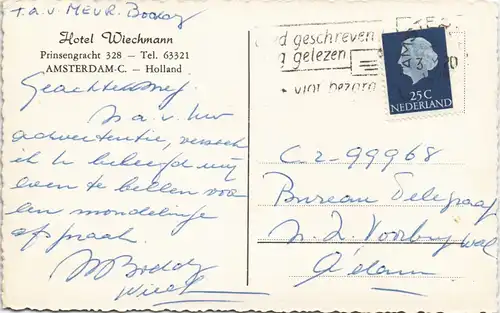 T.a.v. MEVR. Boddy
Hotel Wiechmann
Prinsengracht 328 — Tel. 63321
AMSTERDAM-C. — Holland
Geachte
N.a.v. Uw
advertentie, verzoek
ik U beleefd mij
even te bellen voor
een mondelinge
afspraak.
Boddy
geschreven
gelezen
vlot bezorg
25C
NEDERLAND
C2-99968
Bureau Telegraaf
N.Z. Voorburgwal
A'dam